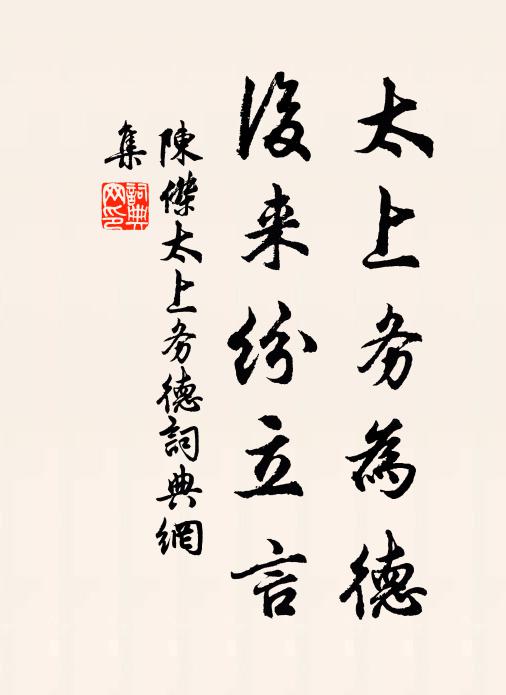 太上务為德
後来纷立言
陳傑太上务德詞典網
集
詞典网印